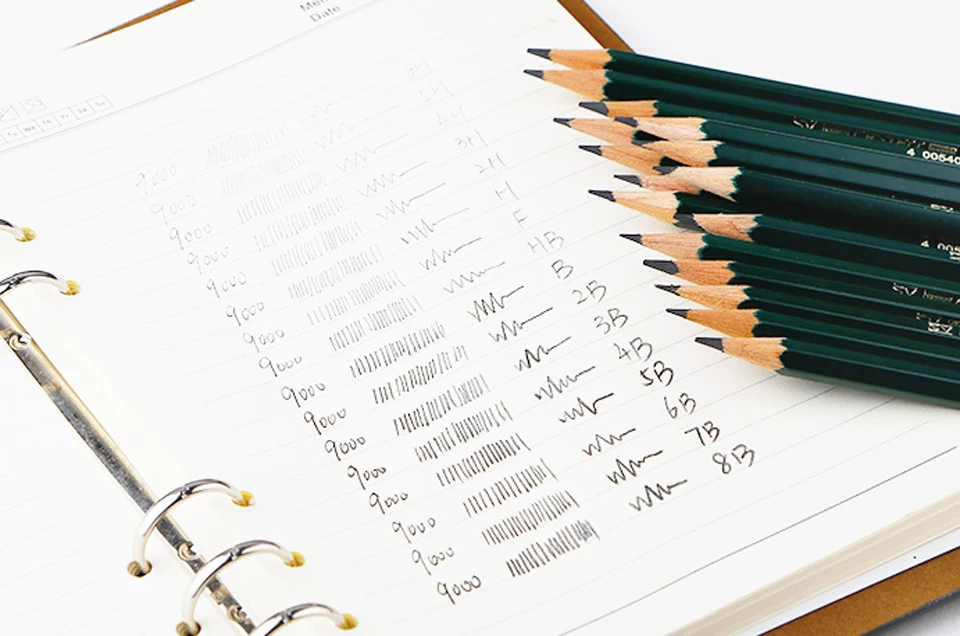 Date
9000 5H
9000 4H
9000 3H
9000 2H
9000 H
9000 F
9000 HB
9000 B
9000 2B
9000 3B
9000 4B
9000 5B
9000 6B
9000 7B
9000 8B
4 00540